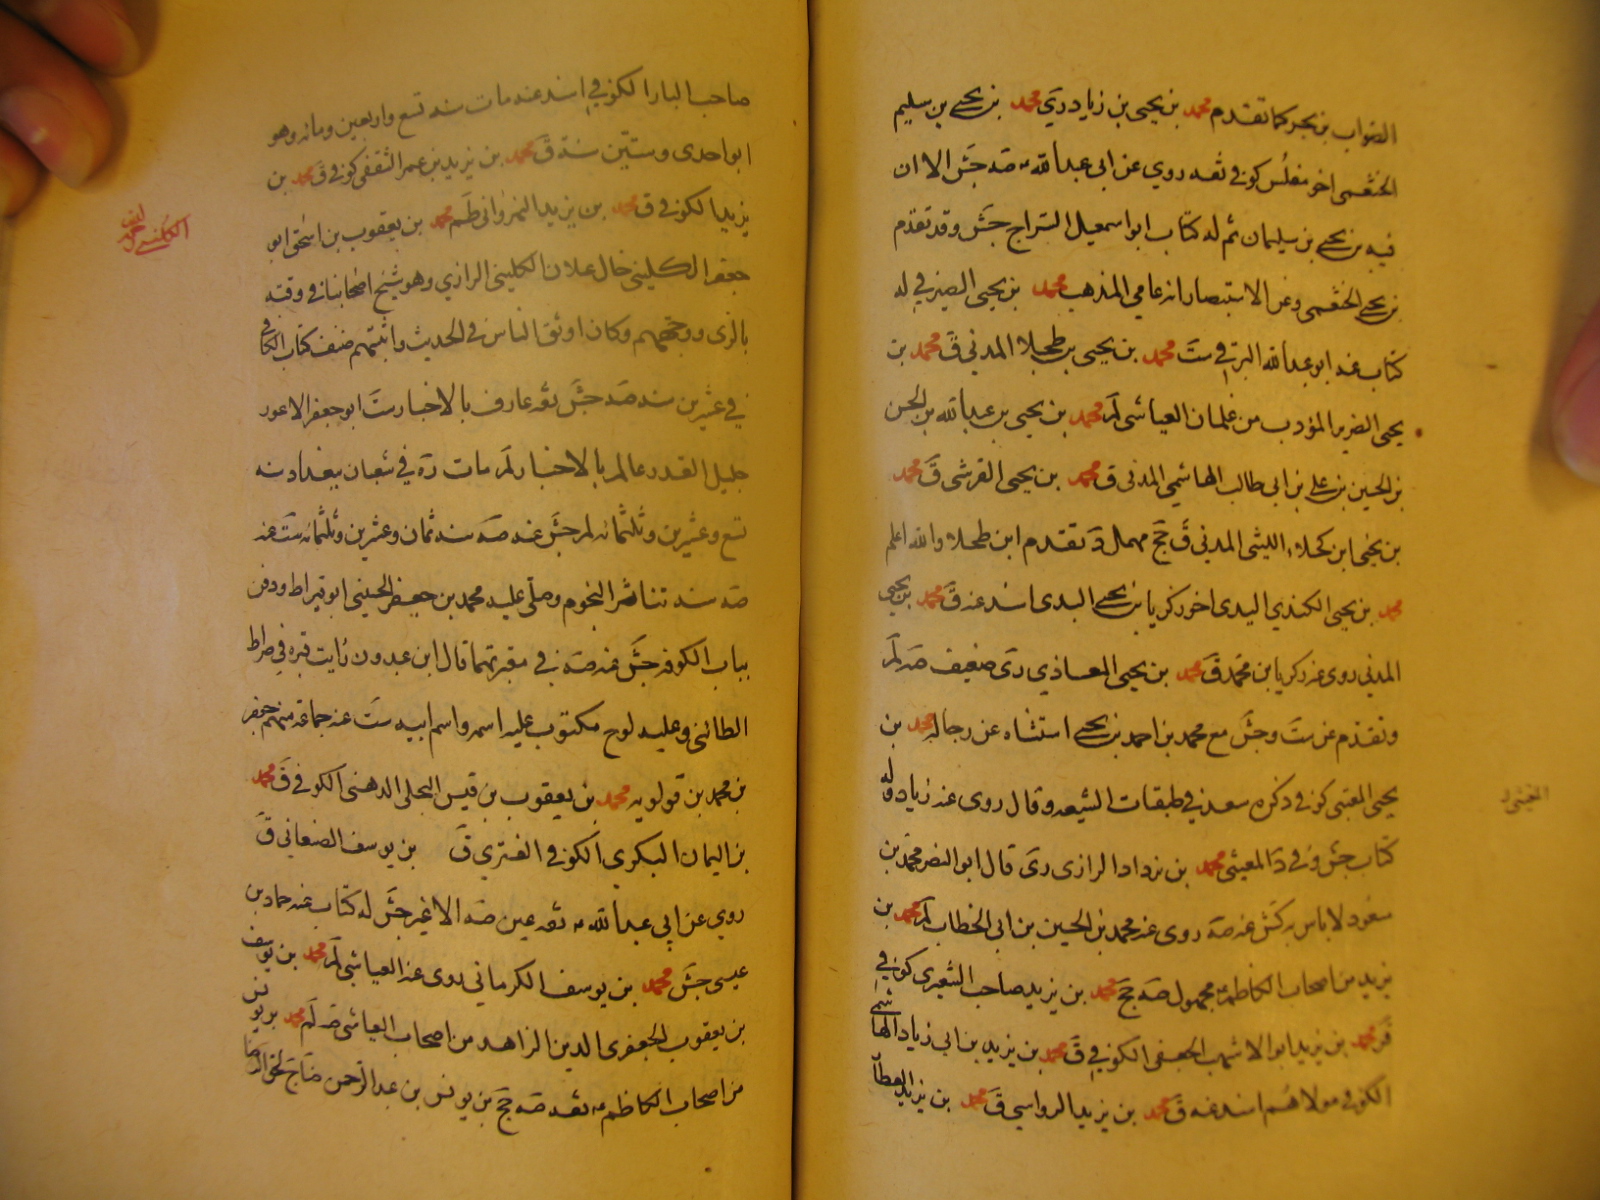 الصواب بن بحر كما تقدم محمد بن يحيى بن زياد ري محمد بن يحيى بن سليم
الخثعمى اخو مغلس كوفى ثقه روي عن ابى عبد الله صه جش الا ان
فيه بن يحيى بن سليمان ثم له كتاب ابو اسمعيل السراج جش وقد تقدم
بن يحيى الخثعمى وعن الاستبصار انه عامي المذهب محمد بن يحيى الصيرفي له
كتاب عنه ابو عبد الله البرقي ست محمد بن يحيى بن طحلا المدنى ق محمد بن
يحيى الضرير المؤدب من غلمان العياشى لم محمد بن يحيى بن عبد الله بن الحسن
بن الحسين بن على بن ابى طالب الهاشمى المدنى ق محمد بن يحيى القرشى ق محمد
بن يحيى ابن كحلاء الليثى المدنى ق حج مهمل د تقدم ابن طحلاء والله اعلم
محمد بن يحيى الكندي البدى اخو زكريا بن يحيى البدى اسند عنه ق محمد بن يحيى
المدنى روى عنه زكريا بن محمد ق محمد بن يحيى المعاذي دى ضعيف صه لم
وتقدم عن ست وجش مع محمد بن احمد بن يحيى استثناه عن رجاله محمد بن
يحيى المغيثى كوفى ذكره سعد في طبقات الشيعه وقال روى عنه زياد وله
كتاب جش وفى د المعيشى محمد بن يزداد الرازى دى قال ابو النضر محمد بن
مسعود لا باس به كش عنه صه روى عنه محمد بن الحسين بن ابى الخطاب لم محمد بن
يزيد من اصحاب الكاظم مجهول صه حج محمد بن يزيد صاحب الشعيرى كوفي
ق محمد بن يزيد ابو الاشهب الجعفى الكوفي ق محمد بن يزيد بن ابى زياد الهاشمى
الكوفى مولاهم اسند عنه ق محمد بن يزيد الرواسي ق محمد بن يزيد العطار
صاحب البار الكوفي اسند عنه مات سنه تسع واربعين ومائه وهو
ابو احدى وستين سنة ق محمد بن يزيد بن عمر الثقفى كوفى ق محمد بن
يزيد الكوفى ق محمد بن يزيد النهروانى طم محمد بن يعقوب بن اسحق ابو
جعفر الكلينى خال علان الكلينى الرازي وهو شيخ اصحابنا فى وقته
بالرى ووجههم وكان اوثق الناس فى الحديث واثبتهم صنف كتاب الكافى
في عشرين سنه صه جش ثقه عارف بالاخبار ست ابو جعفر الاعور
جليل القدر عالم بالاخبار لم مات ره في شعبان ببغداد سنه
تسع وعشرين وثلثمائه لم جش عنه صه سنه ثمان وعشرين وثلثمائه ست عنه
صه سنه تناثر النجوم وصلى عليه محمد بن جعفر الحسينى ابو قيراط ودفن
بباب الكوفه جش عنه صه فى مقبرتها قال ابن عبدون رايت قبره فى صراط
الطائى وعليه لوح مكتوب عليه اسمه واسم ابيه ست عنه جماعة منهم جعفر
بن محمد بن قولويه محمد بن يعقوب بن قيس البجلى الدهنى الكوفى ق محمد
بن اليمان البكرى الكوفى القنبري ق بن يوسف الصنعانى ق
روي عن ابي عبد الله ثقه عين صه الا غير جش له كتاب عنه حماد بن
عيسى جش محمد بن يوسف الكرمانى روى عنه العياشى لم محمد بن يوسف
بن يعقوب الجعفرى الدين الزاهد من اصحاب العياشى صه لم محمد بن يونس
من اصحاب الكاظم ثقه صه حج بن يونس بن عبد الرحمن